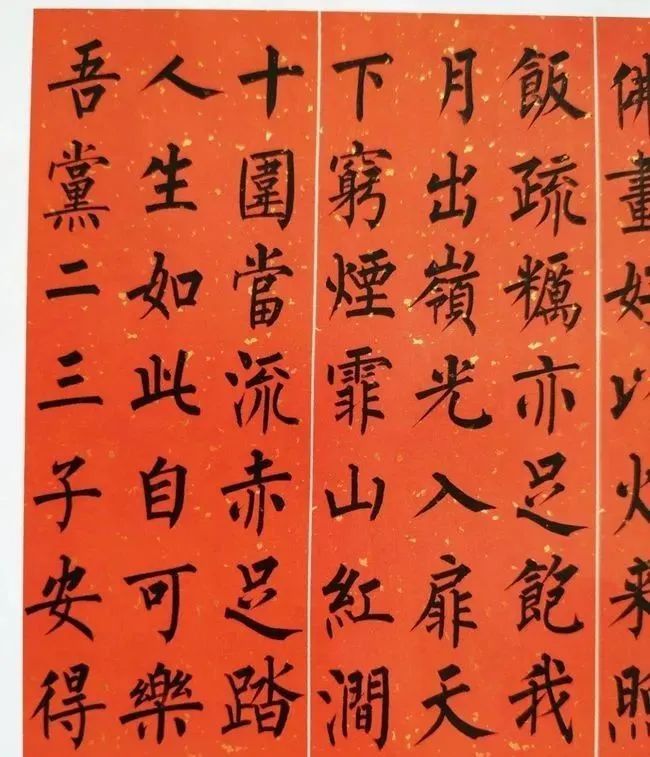 佛畫好以火来照
飯疏糲亦足飽我
月出嶺光入扉天
下窮煙霏山紅澗
十圍當流赤足踏
人生如此自可樂
吾黨二三子安得